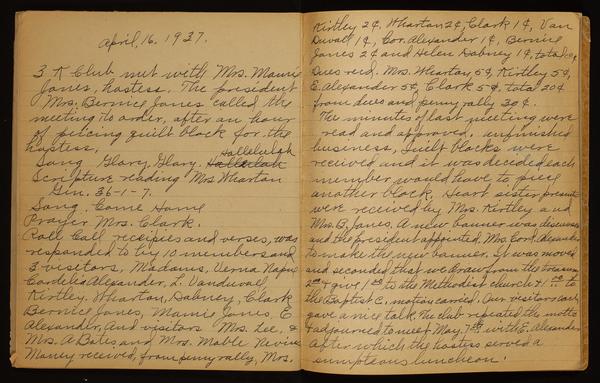 April, 16. 1937.
3 K Club met with Mrs. Mamie
Jones, hostess. The president
Mrs. Bernice Jones called the
meeting to order, after an hour
of piecing quilt block for the
hostess.
Song Glory, Glory. Hallelulah
Scripture reading Mrs Wharton
Gen. 36-1-7.
Song. Come Home
Prayer Mrs. Clark.
Roll Call receipies and verses, was
responded to by 10 members and
3 visetors, Madams, Verna
Cordelia Alexander, L. Vanduvall
Kirtley, Wharton, Dabney, Clark
Bernice Jones, Mamie Jones. E
Alexander, and visitors Mrs. Lee, &
Mrs. A Bates and Mrs. Mable
Money received, from penny rally, Mrs.
Kirtley 2¢, Wharton 2¢, Clark 1¢, Van
Duvall 1¢, Cor. Alexander 1¢, Bernice
Jones 2¢ and Helen Dabney 1¢, total 10¢
Dues recd. Mrs. Wharton 5¢, Kirtley 5¢,
E. Alexander 5¢, Clark 5¢, total 20¢
from dues and penny rally 30¢.
The minutes of last meeting were
read and approved, unfinished
business, Quilt blocks were
received and it was decided each
member would have to piece
another block. Heart sister presents
were received by Mrs. Kirtley and
Mrs. B. Jones. A new banner was discussed
and the president appointed, Mrs Cor. Alexander
to make the new banner. it was moved
and seconded that we draw from the treasury
2.00 & give 1.00 to the Methodist church & 1.00 to
the Baptist C, motion carried. Our visitors each
gave a nice talk. The club repeated the motto
& adjourned to meet May, 7th with E. Alexander
after which the hostess served a
sumpteous luncheon.